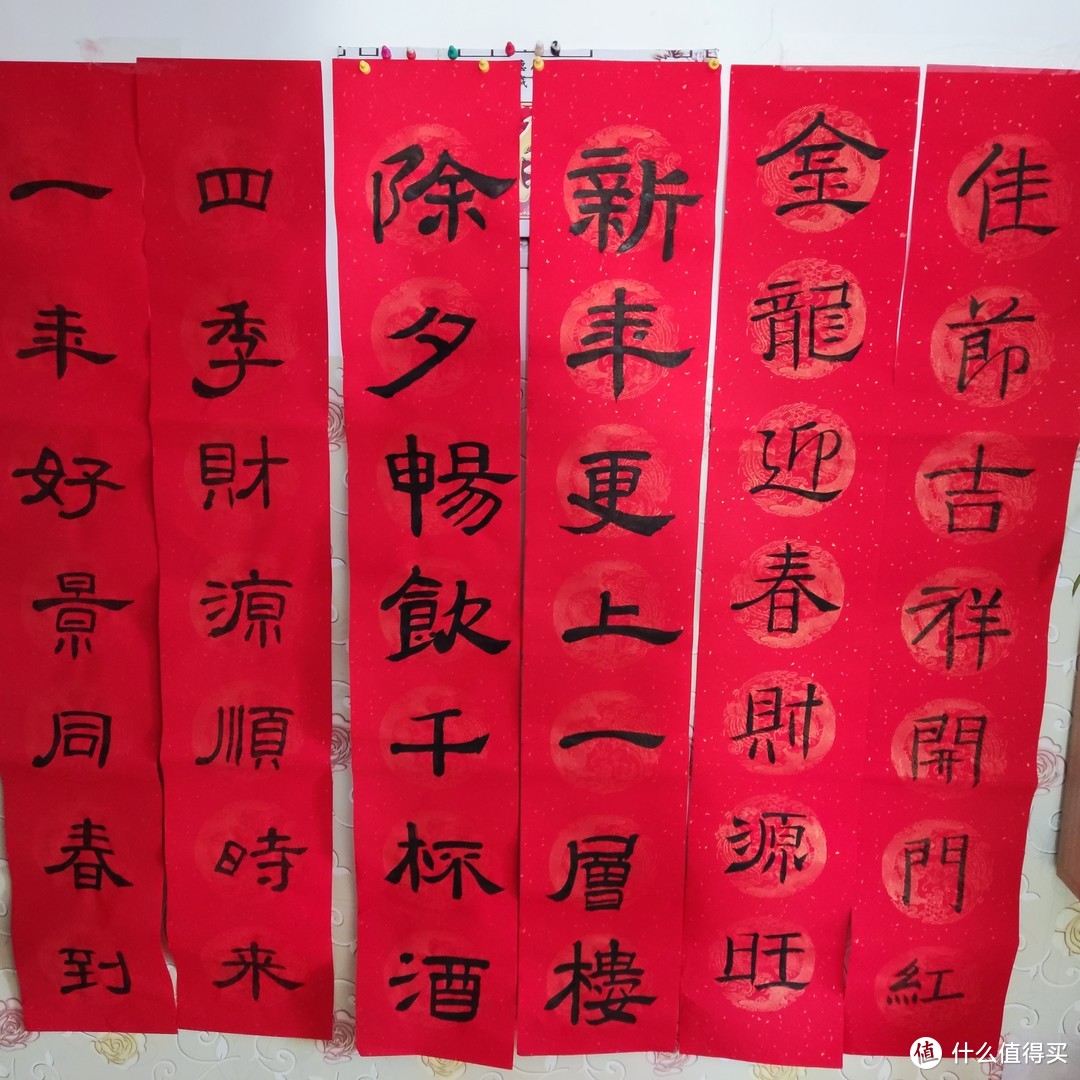 一年好景同春到
四季財源順時来
除夕暢飲千杯酒
新年更上一層樓
金龍迎春財源旺
佳節吉祥開門紅
值 什么值得买